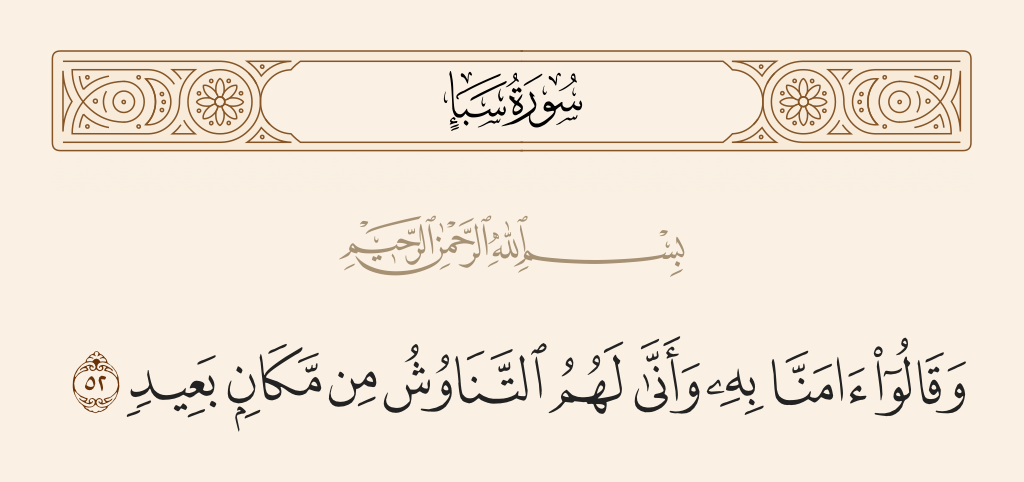 سُورَةُ سَبَإٍ
بِسْمِ ٱللَّهِ ٱلرَّحْمَٰنِ ٱلرَّحِيمِ
وَقَالُوٓا۟ ءَامَنَّا بِهِۦ وَأَنَّىٰ لَهُمُ ٱلتَّنَاوُشُ مِن مَّكَانٍۭ بَعِيدٍ ٥٢